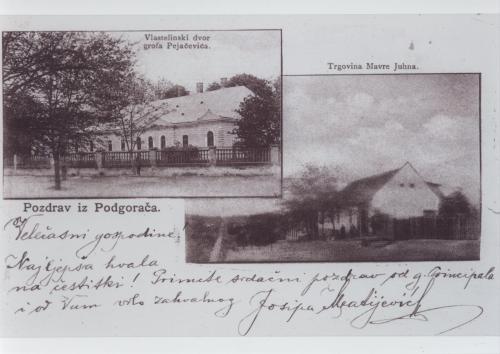 Vlastelinski dvor
grofa Pejačevića.
Trgovina Mavre Juhna.
Pozdrav iz Podgorača.
Velečasni gospodine!
Najljepša hvala
na čestitki! Primete srdačni pozdrav od g. Principala
i od Vam vrlo zahvalnog Josipa